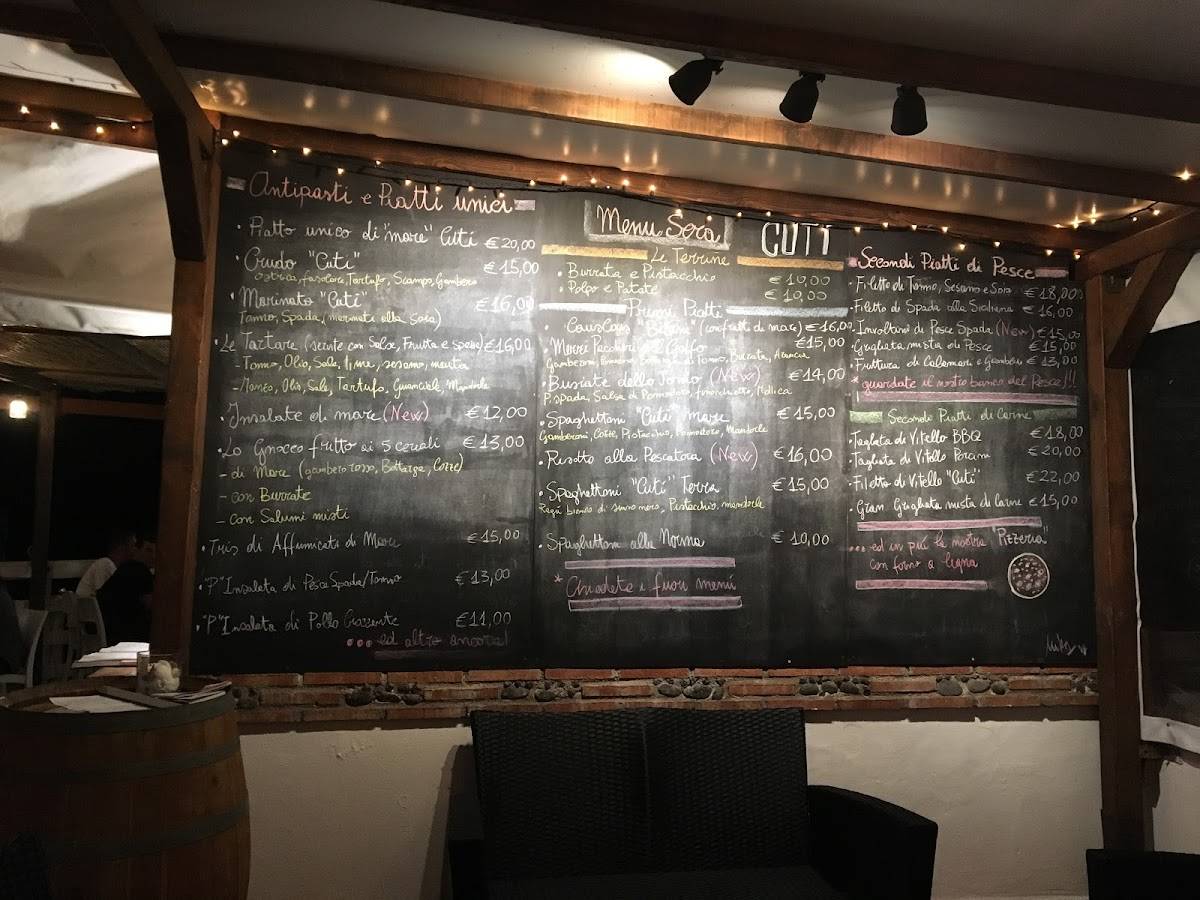 Antipasti e Piatti unici
• Piatto unico di "mare" Cuti €20,00
• Crudo "Cuti" €15,00
Ostrica, fasolare, Tartufo, Scampo, Gambero
• Marinato "Cuti" €16,00
Tonno, Spada (marinati alla Soia)
• Le Tartare (servite con Salse, Frutta e spezie) €16,00
- Tonno, Olio, Sale, lime, sesamo, menta
- Manzo, Olio, Sale, Tartufo, Guanciale, Mandorle
• Insalata di mare (New) €12,00
• Lo Gnocco fritto ai 5 cereali €13,00
- di Mare (gambero rosso, Bottarga, Cozze)
- con Burrata
- con Salumi misti
• Tris di Affumicati di Mare €15,00
• "P" Insalata di Pesce Spada/Tonno €13,00
• "P" Insalata di Pollo Croccante €11,00
... ed altro ancora!
Menu Sera CUTÍ
Le Terrine
• Burrata e Pistacchio €10,00
• Polpo e Patate €10,00
Primi Piatti
• CousCous (con frutti di mare) €16,00
• Mezzi Paccheri del Golfo €15,00
Gamberoni, Tonno, Burrata, Arancia
• Busiate dello Ionio (New) €14,00
P.spada, Salsa di Pomodoro, finocchietto, Mollica
• Spaghettoni "Cuti" Mare €15,00
Gamberoni, Cozze, Pistacchio, Pomodoro, Mandorle
• Risotto alla Pescatora (New) €16,00
• Spaghettoni "Cuti" Terra €15,00
Ragù bianco di suino nero, Pistacchio, mandorle
• Spaghettoni alla Norma €10,00
* Chiedete i fuori menù
Secondi Piatti di Pesce
• Filetto di Tonno, Sesamo e Soia €18,00
• Filetto di Spada alla Siciliana €16,00
• Involtini di Pesce Spada (New) €15,00
• Grigliata mista di Pesce €15,00
• Frittura di Calamari e Gamberi €13,00
* guardate il nostro banco del Pesce!!!
Secondi Piatti di Carne
• Tagliata di Vitello BBQ €18,00
• Tagliata di Vitello Porcini €20,00
• Filetto di Vitello "Cuti" €22,00
• Gran Grigliata mista di Carne €15,00
... ed in più la nostra "Pizzeria"
con forno a legna